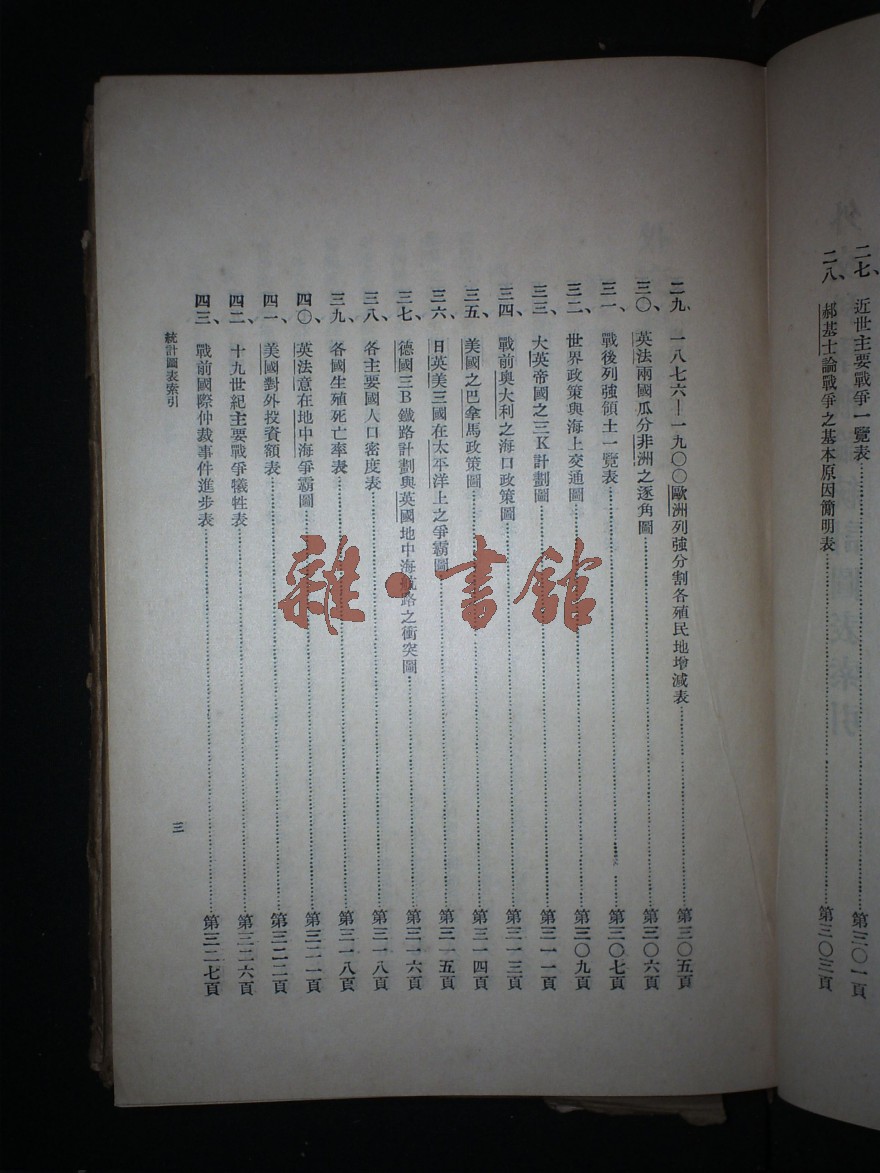 二七、近世主要戰爭一覽表……第三〇一頁
二八、郝基士論戰爭之基本原因簡明表……第三〇三頁
二九、一八七六—一九〇〇歐洲列強分割各殖民地增減表……第三〇五頁
三〇、英法兩國瓜分非洲之逐角圖……第三〇六頁
三一、戰後列強領土一覽表……第三〇七頁
三二、世界政策與海上交通圖……第三〇九頁
三三、大英帝國之三K計劃圖……第三一一頁
三四、戰前奧大利之海口政策圖……第三一三頁
三五、美國之巴拿馬政策圖……第三一四頁
三六、日英美三國在太平洋上之爭霸圖……第三一五頁
三七、德國三B鐵路計劃與英國地中海航路之衝突圖……第三一六頁
三八、各主要國人口密度表……第三一八頁
三九、各國生殖死亡率表……第三一八頁
四〇、英法意在地中海爭霸圖……第三二一頁
四一、美國對外投資額表……第三二二頁
四二、十九世紀主要戰爭犧牲表……第三二六頁
四三、戰前國際仲裁事件進步表……第三二七頁
統計圖表索引
三
雜·書館